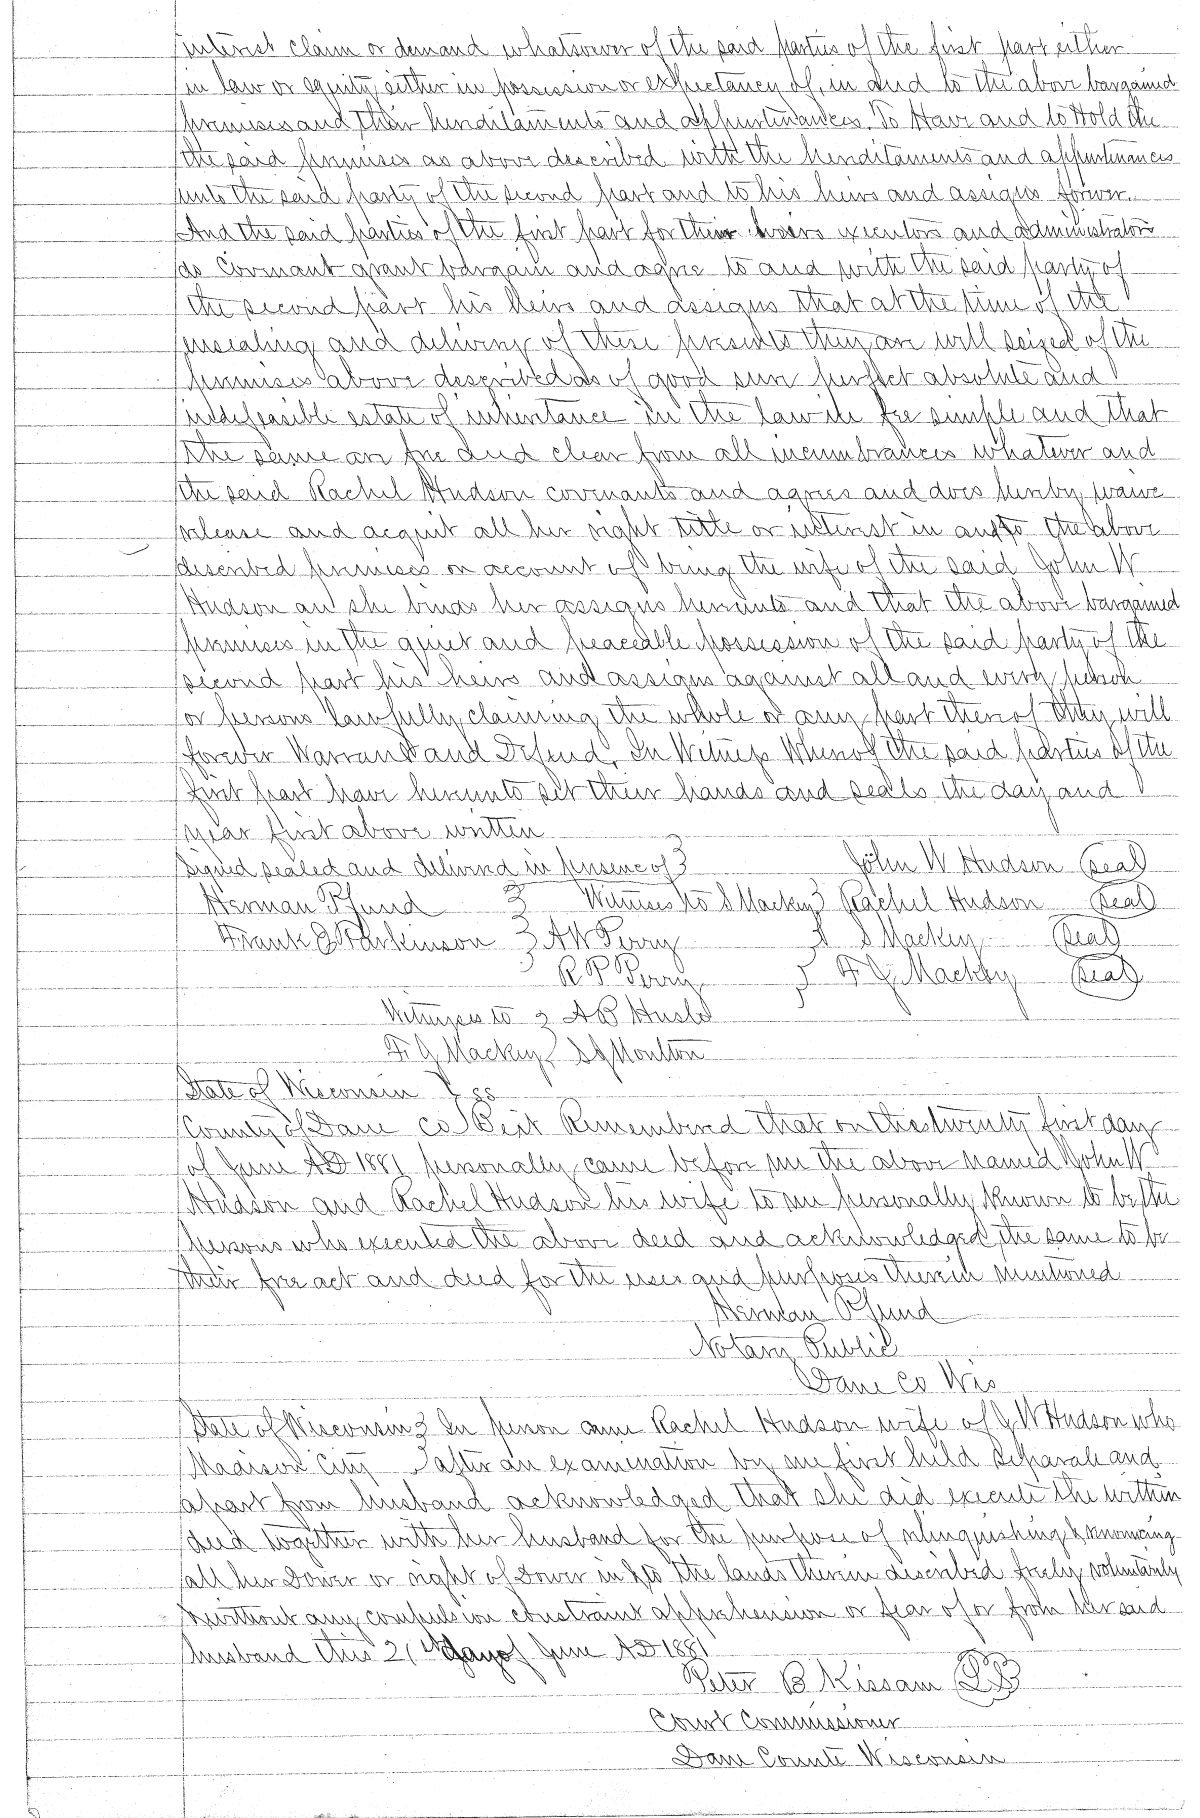 interest claim or demand whatsoever of the said parties of the first part either
in law or equity either in possession or expectancy of, in and to the above bargained
premises and their hereditaments and appurtenances. To Have and to Hold the
the said premises as above described with the hereditaments and appurtenances
unto the said party of the second part and to his heirs and assigns forever.
And the said parties of the first part for their heirs executors and administrators
do covenant grant bargain and agree to and with the said party of
the second part his heirs and assigns that at the time of the
ensealing and delivery of these presents they are well seized of the
premises above described as of good sure perfect absolute and
indefeasible estate of inheritance in the law in fee simple and that
the same are free and clear from all incumbrances whatever and
the said Rachel Hudson covenants and agrees and does hereby waive
release and acquit all her right title or interest in and to the above
described premises on account of being the wife of the said John W
Hudson an she binds her assigns hereunto and that the above bargained
premises in the quiet and peaceable possession of the said party of the
second part his heirs and assigns against all and every person
or persons lawfully claiming the whole or any part thereof they will
forever Warrant and Defend. In Witness Whereof the said parties of the
first part have hereunto set their hands and seals the day and
year first above written
Signed sealed and delivered in presence of John W Hudson (seal)
Herman Pfund Witnesses to S Mackey Rachel Hudson (seal)
Frank J Parkinson A W Perry S Mackey (seal)
R P Perry F G Mackey (seal)
Witnesses to A B
F G Mackey S J Moulton
State of Wisconsin ss
County of Dane Co Be it Remembered that on this twenty first day
of June AD 1881 personally came before me the above named John W
Hudson and Rachel Hudson his wife to me personally known to be the
persons who executed the above deed and acknowledged the same to be
their free act and deed for the uses and purposes therein mentioned
Herman Pfund
Notary Public
Dane Co Wis
State of Wisconsin In person came Rachel Hudson wife of J W Hudson who
Madison City after an examination by me first held separate and
apart from husband acknowledged that she did execute the within
deed together with her husband for the purpose of relinquishing &
all her Dower or right of Dower in & to the lands therein described freely voluntarily
& without any compulsion constraint apprehension or fear of or from her said
husband this 21st day of June AD 1881
Peter B Kissam
Court Commissioner
Dane County Wisconsin